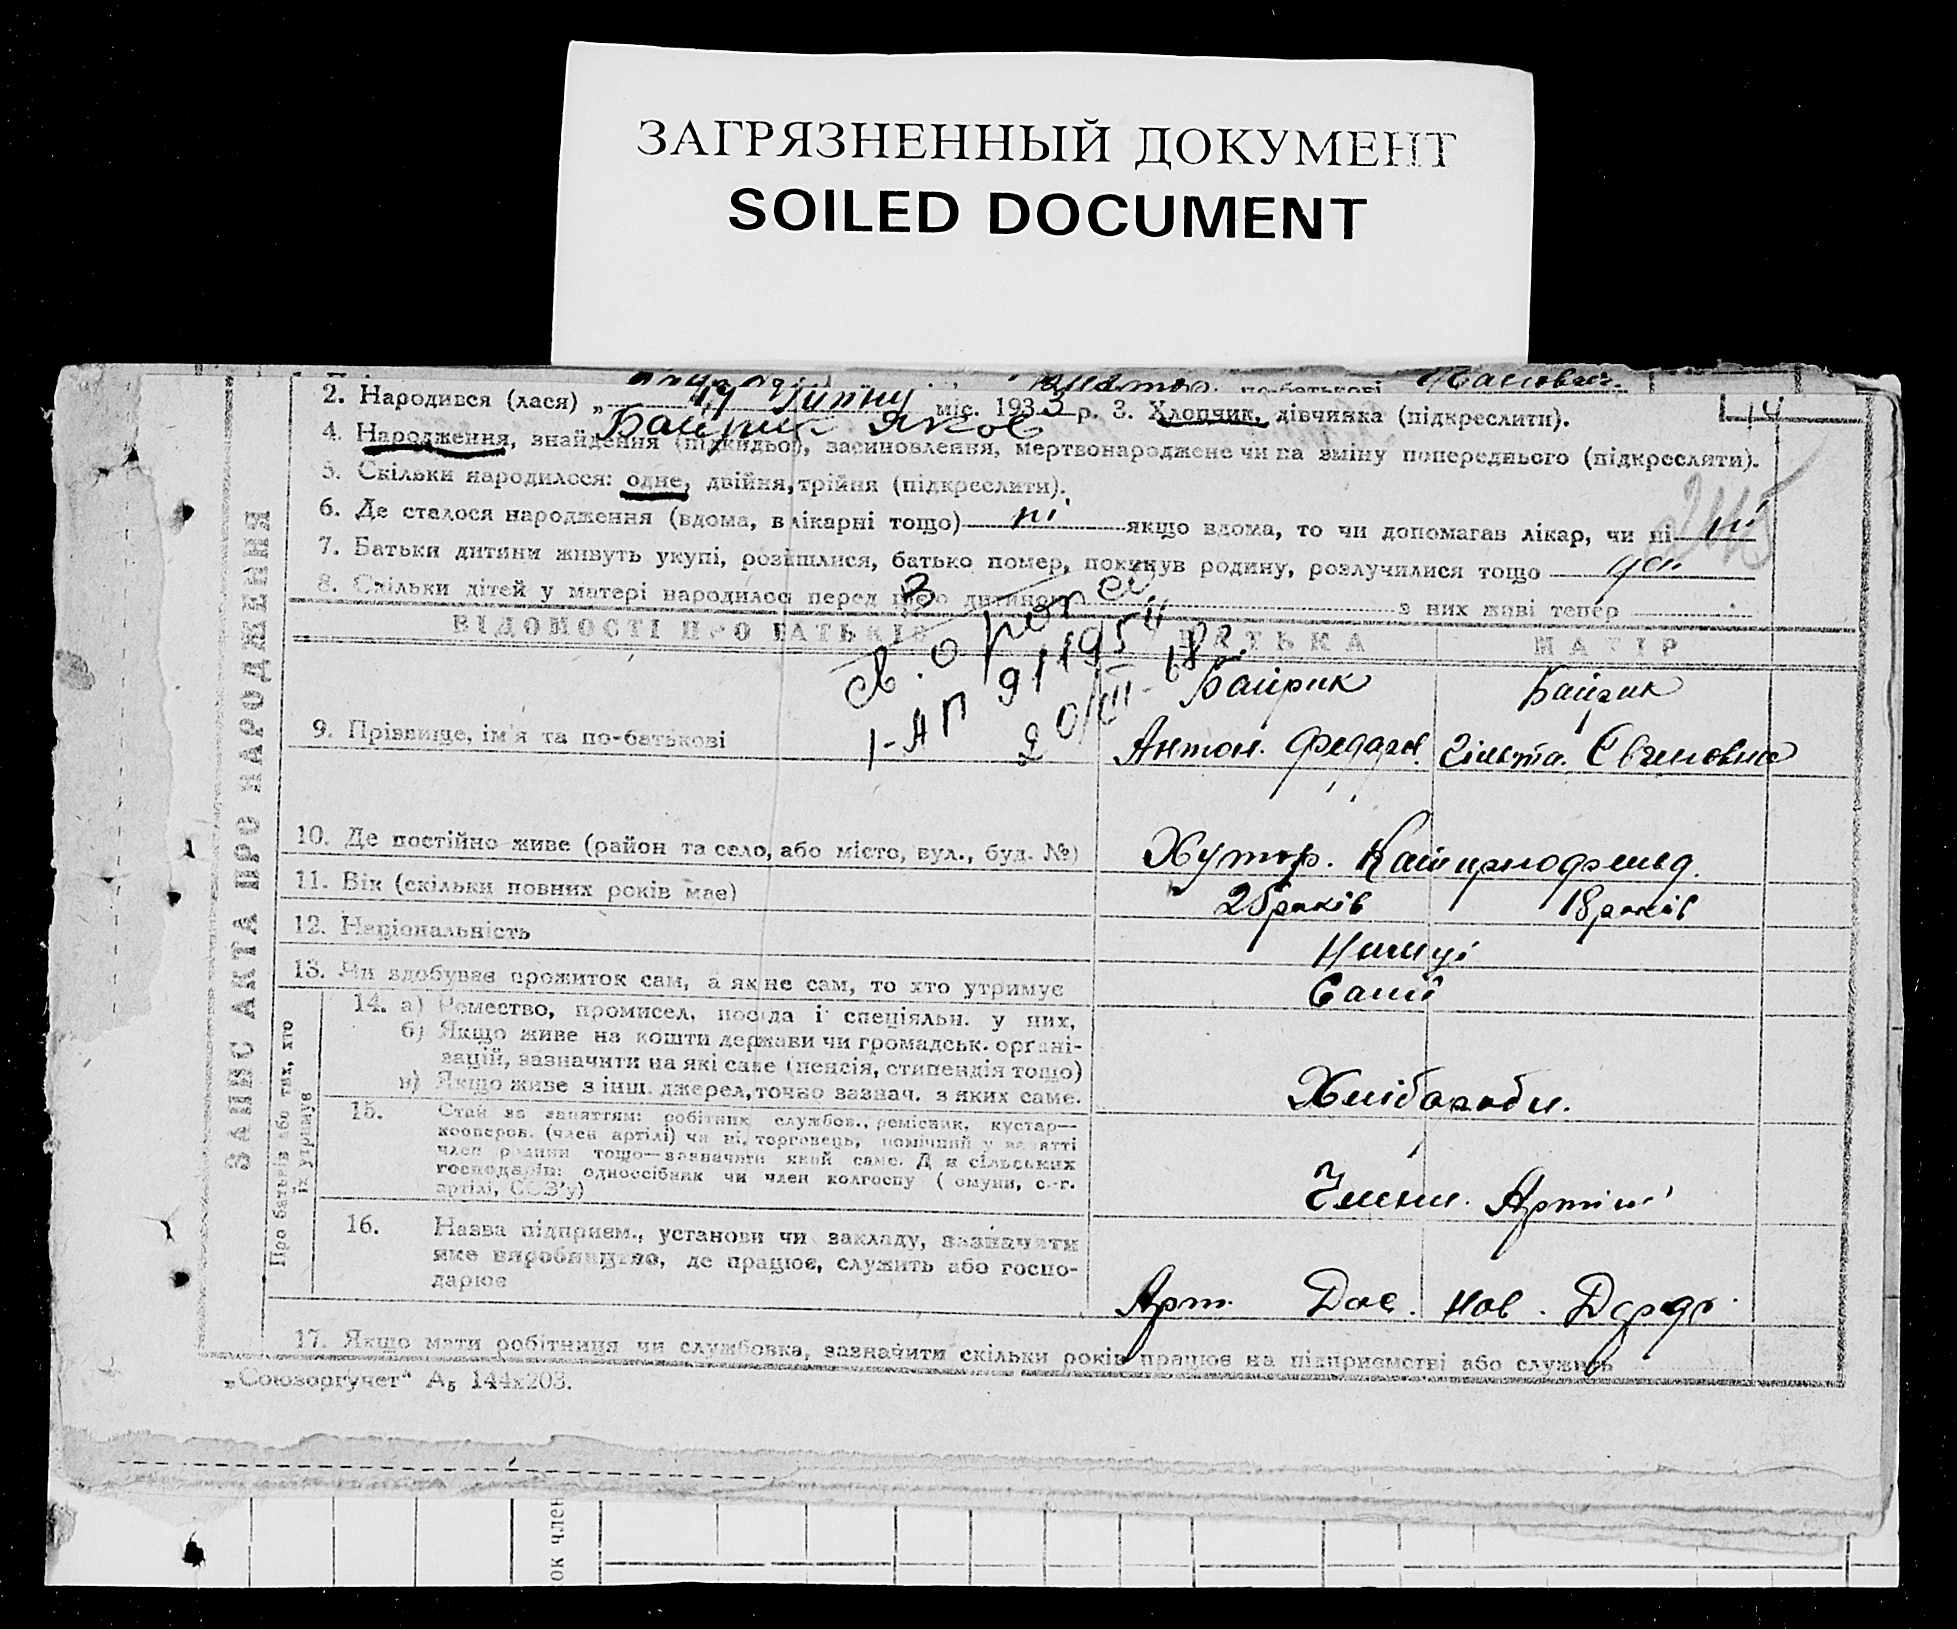 ЗАГРЯЗНЕННЫЙ ДОКУМЕНТ
SOILED DOCUMENT
2. Народився (лася) „ 19 міс. 1933 р. 3. Хлопчик, дівчинка (підкреслити).
14
Яков
4. Народження, знайдення (підкидьо), засиновлення, мертвонароджене чи на зміну попереднього (підкреслити).
5. Скільки народилося: одне, двійня, трійня (підкреслити).
6. Де сталося народження (вдома, в лікарні тощо) ні якщо вдома, то чи допомагав лікар, чи ні ні
7. Батьки дитини живуть укупі, розішлися, батько помер, покинув родину, розлучилися тощо
8. Скільки дітей у матері народилося перед цією дитиною з них живі тепер
ВІДОМОСТІ ПРО БАТЬКІВ БАТЬКА МАТІР
Байрик Байрик
9. Прізвище, ім'я та по-батькові Антон. Федоров.
10. Де постійно живе (район та село, або місто, вул., буд. №) Хутор.
11. Вік (скільки повних років має) 25 років 18 років
12. Національність Німці
13. Чи здобуває прожиток сам, а як не сам, то хто утримує Самі
14. а) Ремество, промисел, посада і спеціяльн. у них,
б) Якщо живе на кошти держави чи громадськ. органі-
зацій, зазначити на які саме (пенсія, стипендія тощо)
в) Якщо живе з інш. джерел, точно зазнач. з яких саме.
Хліборобы.
15. Стан за заняттям: робітник, службов., ремісник, кустар—
кооперов. (член артілі) чи ні, торговець, помічний у занятті
член родини тощо—зазначити який саме. Для сільських
господарів: одноосібник чи член колгоспу (комуни, с.-г.
артілі, СОЗ'у)
Члени. Артілі
16. Назва підприєм., установи чи закладу, зазначити
яке виробництво, де працює, служить або госпо-
дарює
Арт. нов.
17. Якщо мати робітниця чи службовка, зазначити скільки років працює на підприємстві або служить
„Союзоргучет“ А₅ 144х203.
ЗАПИС АКТА ПРО НАРОДЖЕННЯ
Про батьків або тих, хто
їх утримує